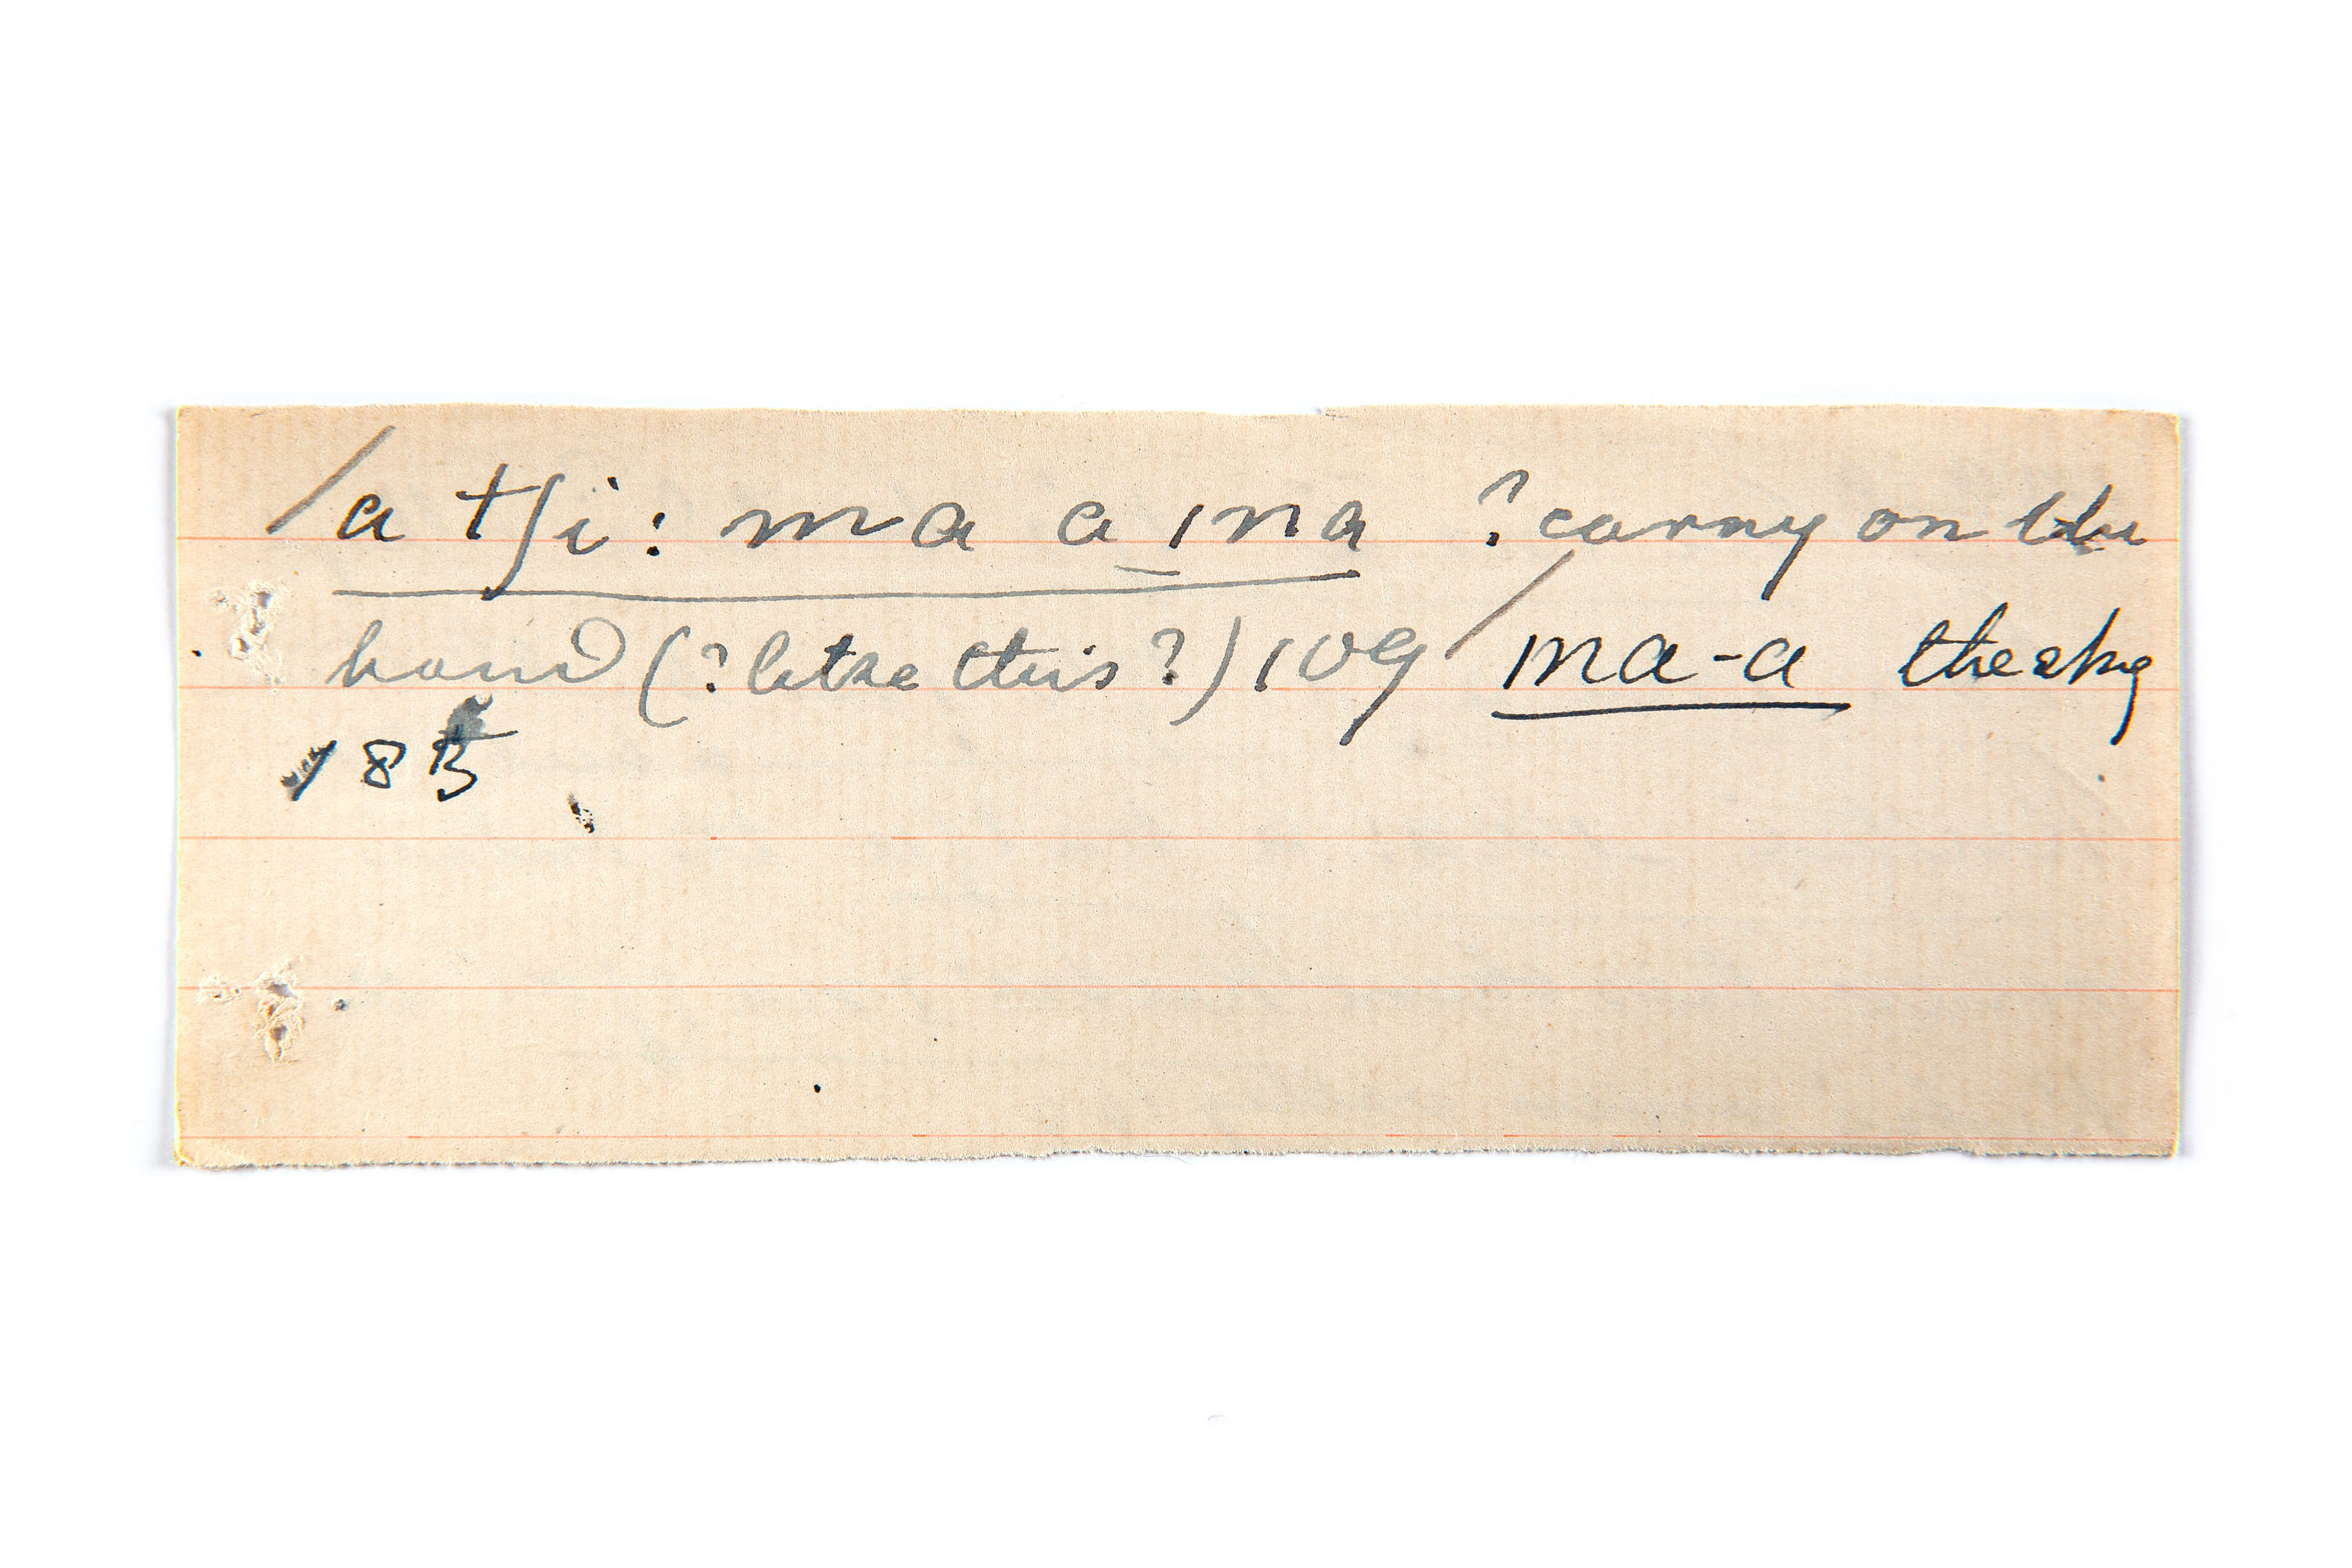 /a tʃi: ma a ına ? carry on the
hand (? like this ?) 109 /ma-a the sky
185